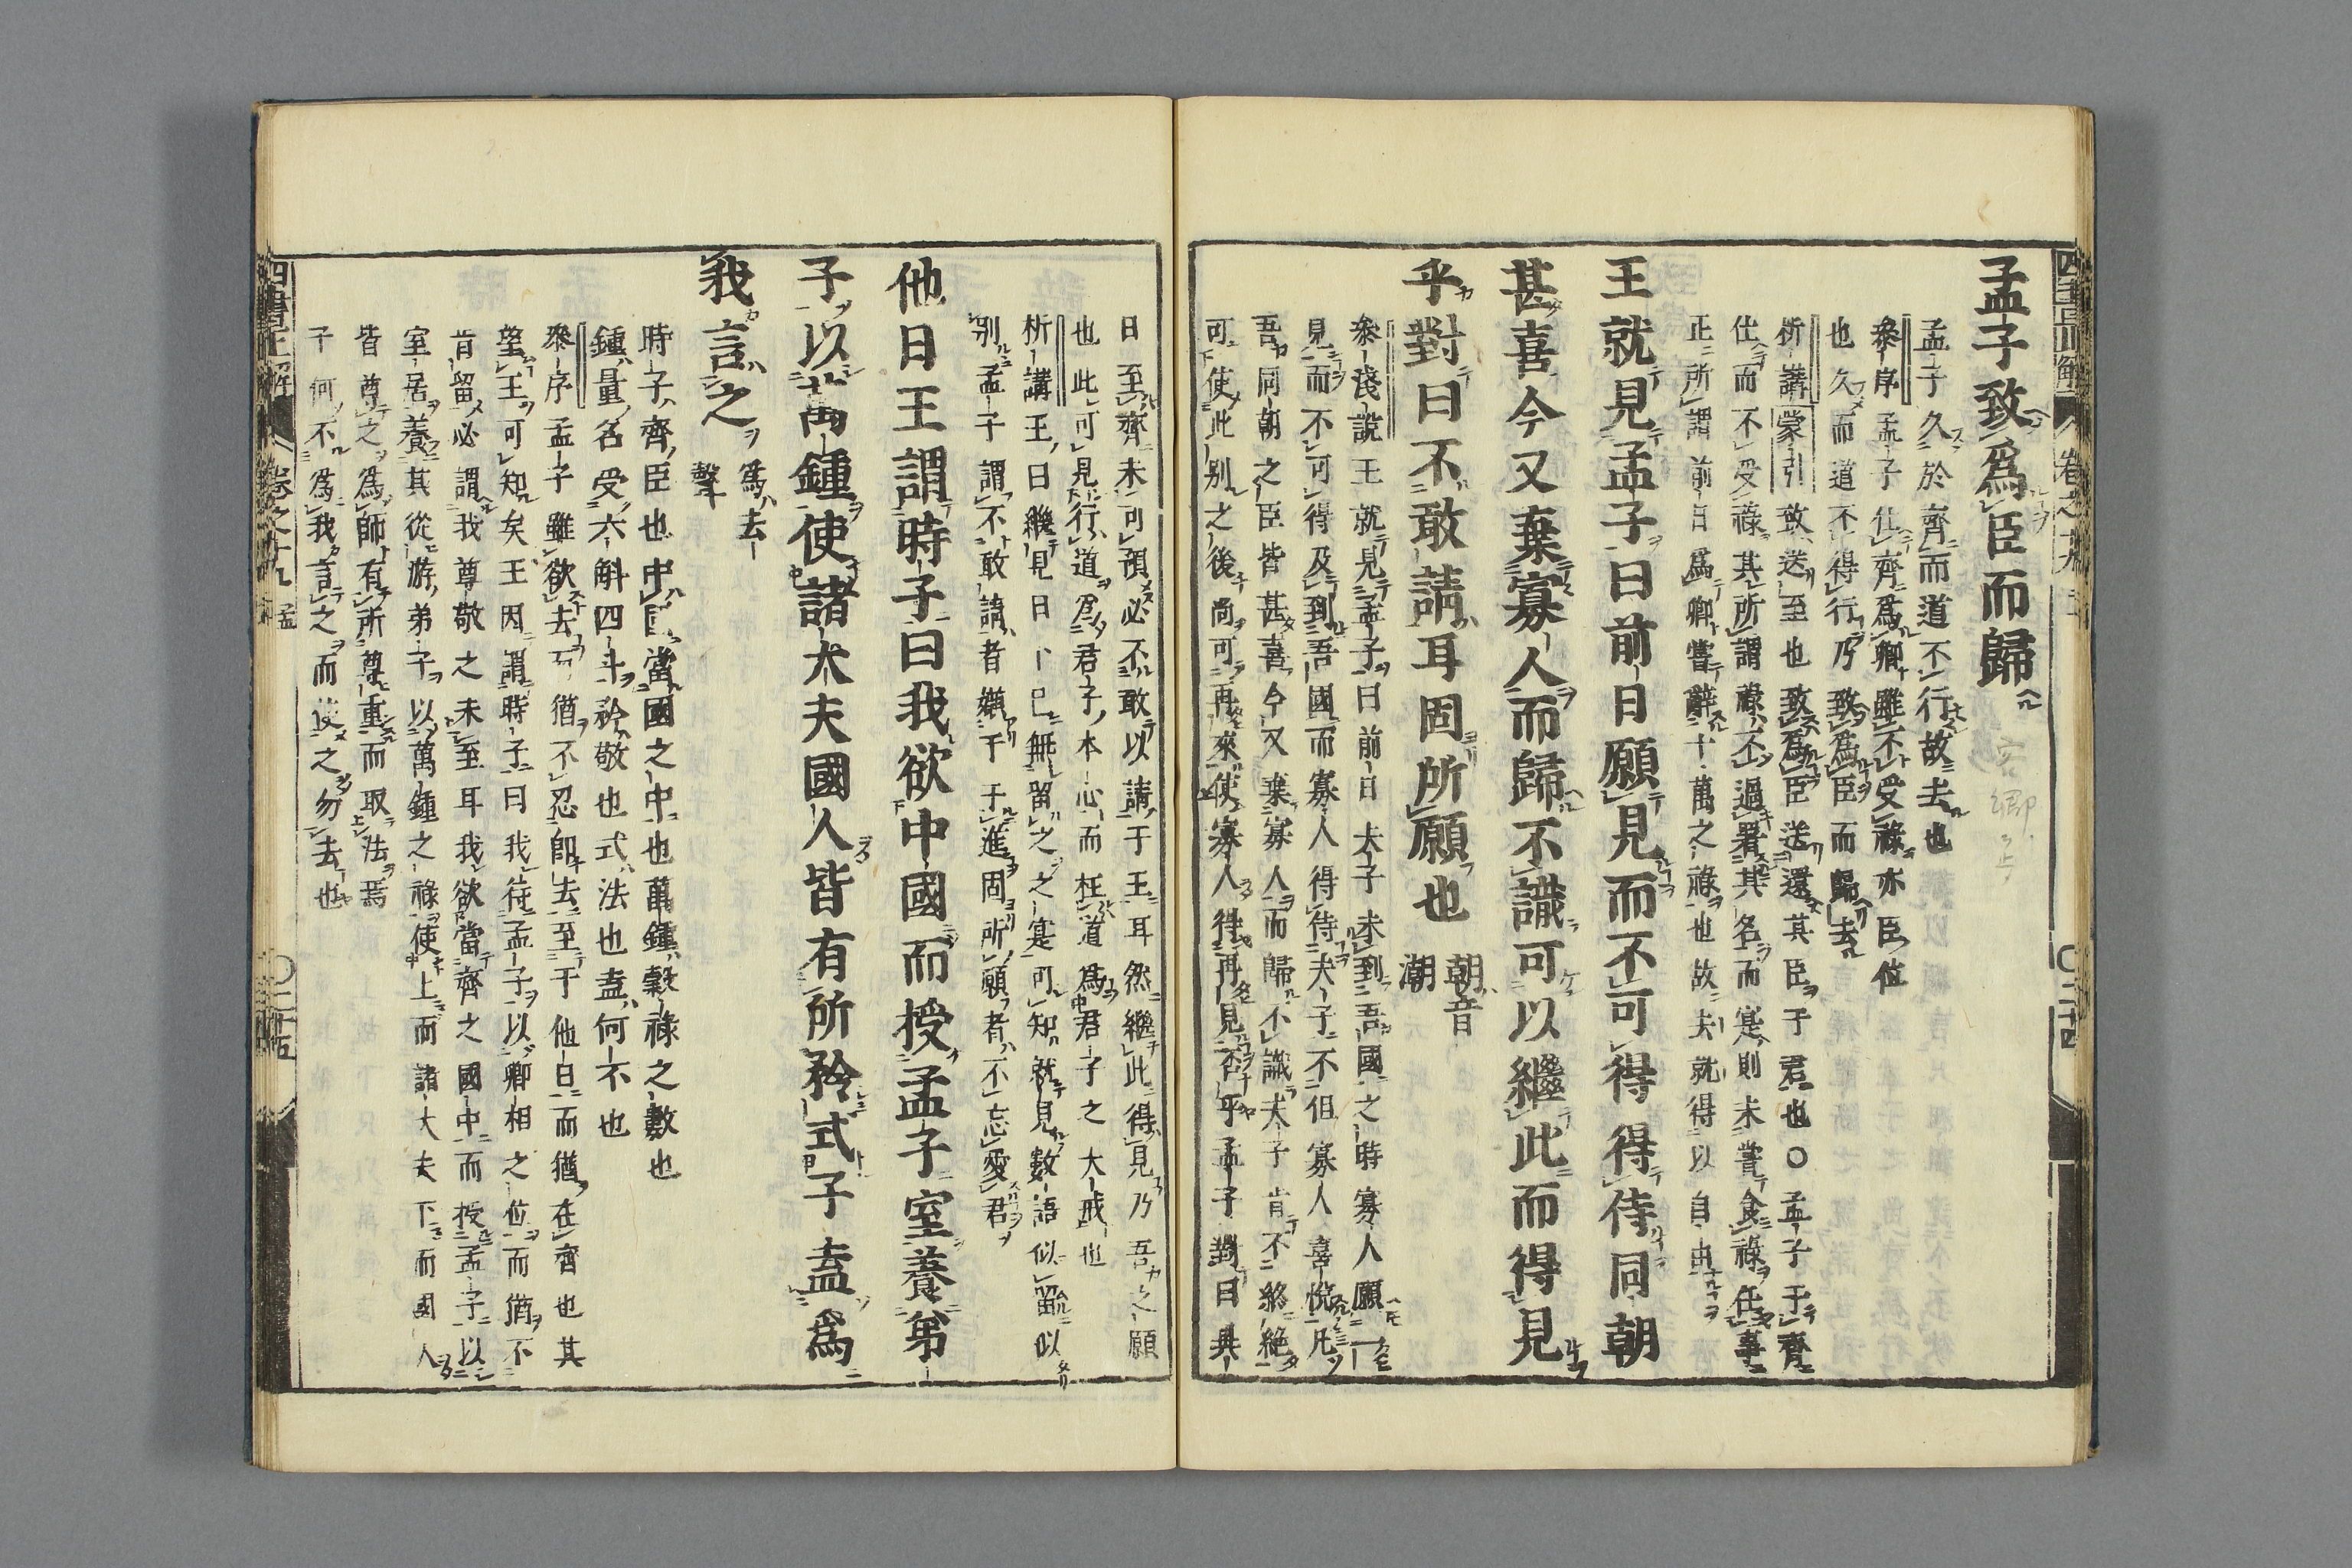 孟子致爲臣而歸
孟子久於齊而道不行故去也
參序孟子仕齊爲卿雖不受祿亦臣位
也久而道不得行乃致爲臣而歸去
析講蒙引致送至也致爲臣送還其臣于君也〇孟子于齊
仕而不受祿其所謂祿不過署其名而寔則未嘗食祿任事
正所謂前日爲卿嘗辭十萬之祿也故夫就得以自由
王就見孟子曰前日願見而不可得得侍同朝
甚喜今又棄寡人而歸不識可以繼此而得見
乎對曰不敢請耳固所願也朝音潮
參淺說王就見孟子曰前日夫子未到吾國之時寡人願一
見而不可得及到吾國而寡人得待夫子不但寡人喜悅凡
吾同朝之臣皆甚喜今又棄寡人而歸不識夫子肯不終絶
可使此別之後尚可再來使寡人得再見否乎孟子對曰具
日至齊未可預必不敢以請于王耳然繼此得見乃吾之願
也此可見行道爲君子本心而枉道爲君子之大戒也
析講王曰繼見日卜已無留之之寔可知就見數語似留似
別孟子謂不敢請者嫌于于進固所願者不忘愛君
他日王謂時子曰我欲中國而授孟子室養弟
子以萬鍾使諸大夫國人皆有所矜式子盍爲
我言之爲去聲
時子齊臣也中國當國之中也萬鍾穀祿之數也
鍾量名受六斛四斗矜敬也式法也盍何不也
參序孟子雖欲去而猶不忍卽去至于他日而猶在齊也其
望王可知矣王因謂時子曰我待孟子以卿相之位而猶不
肯留必謂我尊敬之未至耳我欲當齊之國中而授孟子以
室居養其從游弟子以萬鍾之祿使上而諸大夫下而國人
皆尊之爲師有所尊重而取法焉
子何不爲我言之而使之勿去也